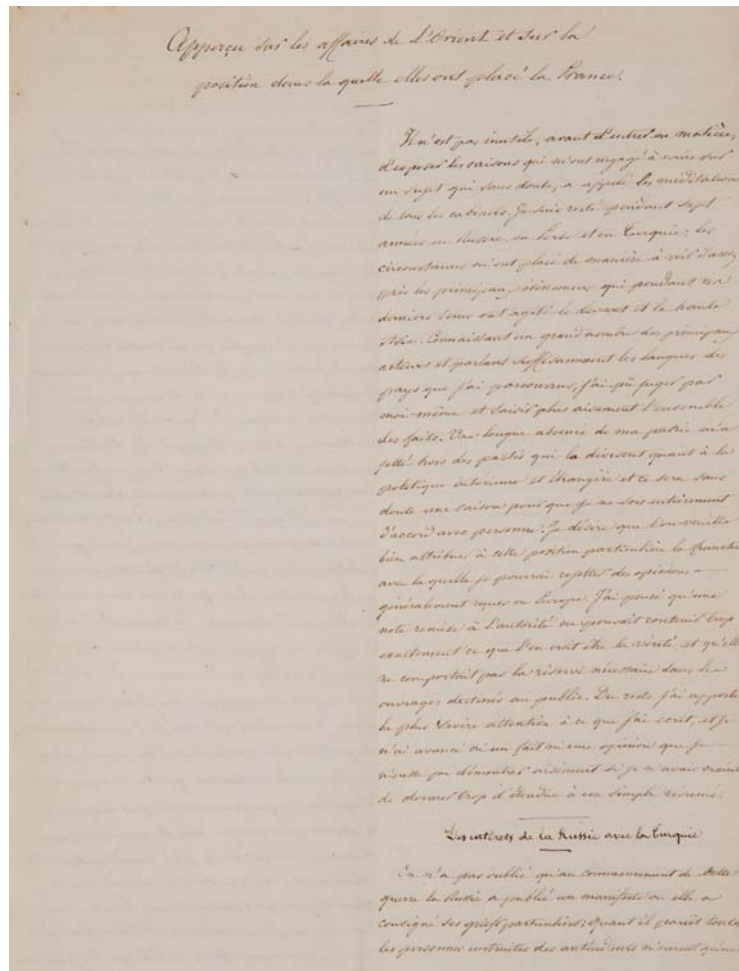 Apperçu sur les affaires de l'Orient et sur la
position dans la quelle elles ont placé la France.
Il n'est pas inutile, avant d'entrer en matière,
d'exposer les raisons qui m'ont engagé à écrire sur
un sujet qui sans doute, a appelé les méditations
de tous les cabinets. Je suis resté pendant sept
années en Russie, en Perse et en Turquie; les
circonstances m'ont placé de manière à voir d'assez
près les principaux évènemens qui pendant ces
derniers tems ont agité le levant et la haute
Asie. Connaissant un grand nombre des principaux
acteurs et parlant suffisamment les langues des
pays que j'ai parcourus, j'ai pû juger par
moi-même et saisir plus aisément l'ensemble
des faits. Une longue absence de ma patrie m'a
jetté hors des partis qui la divisent quant à la
politique intérieure et étrangère et ce sera sans
doute une raison pour que je ne sois entièrement
d'accord avec personne. Je désire que l'on veuille
bien attribuer à cette position particulière la franchise
avec la quelle je pourrai rejetter des opinions
généralement reçues en Europe. J'ai pensé qu'une
note remise à l'autorité ne pouvait contenir trop
exactement ce que l'on croit être la vérité et qu'elle
ne comportait pas la réserve nécessaire dans les
ouvrages destinés au public. Du reste j'ai apporté
la plus sévère attention à ce que j'ai écrit, et je
n'ai avancé ni un fait ni une opinion que je
n'eusse pu démontrer aisément si je n'avais craint
de donner trop d'étendue à un simple résumé.
Des intérêts de la Russie avec la Turquie
On n'a pas oublié qu'au commencement de cette
guerre la Russie a publié un manifeste où elle a
consigné ses griefs particuliers; quant il parût toutes
les personnes instruites des antécédents n'eurent qu'une